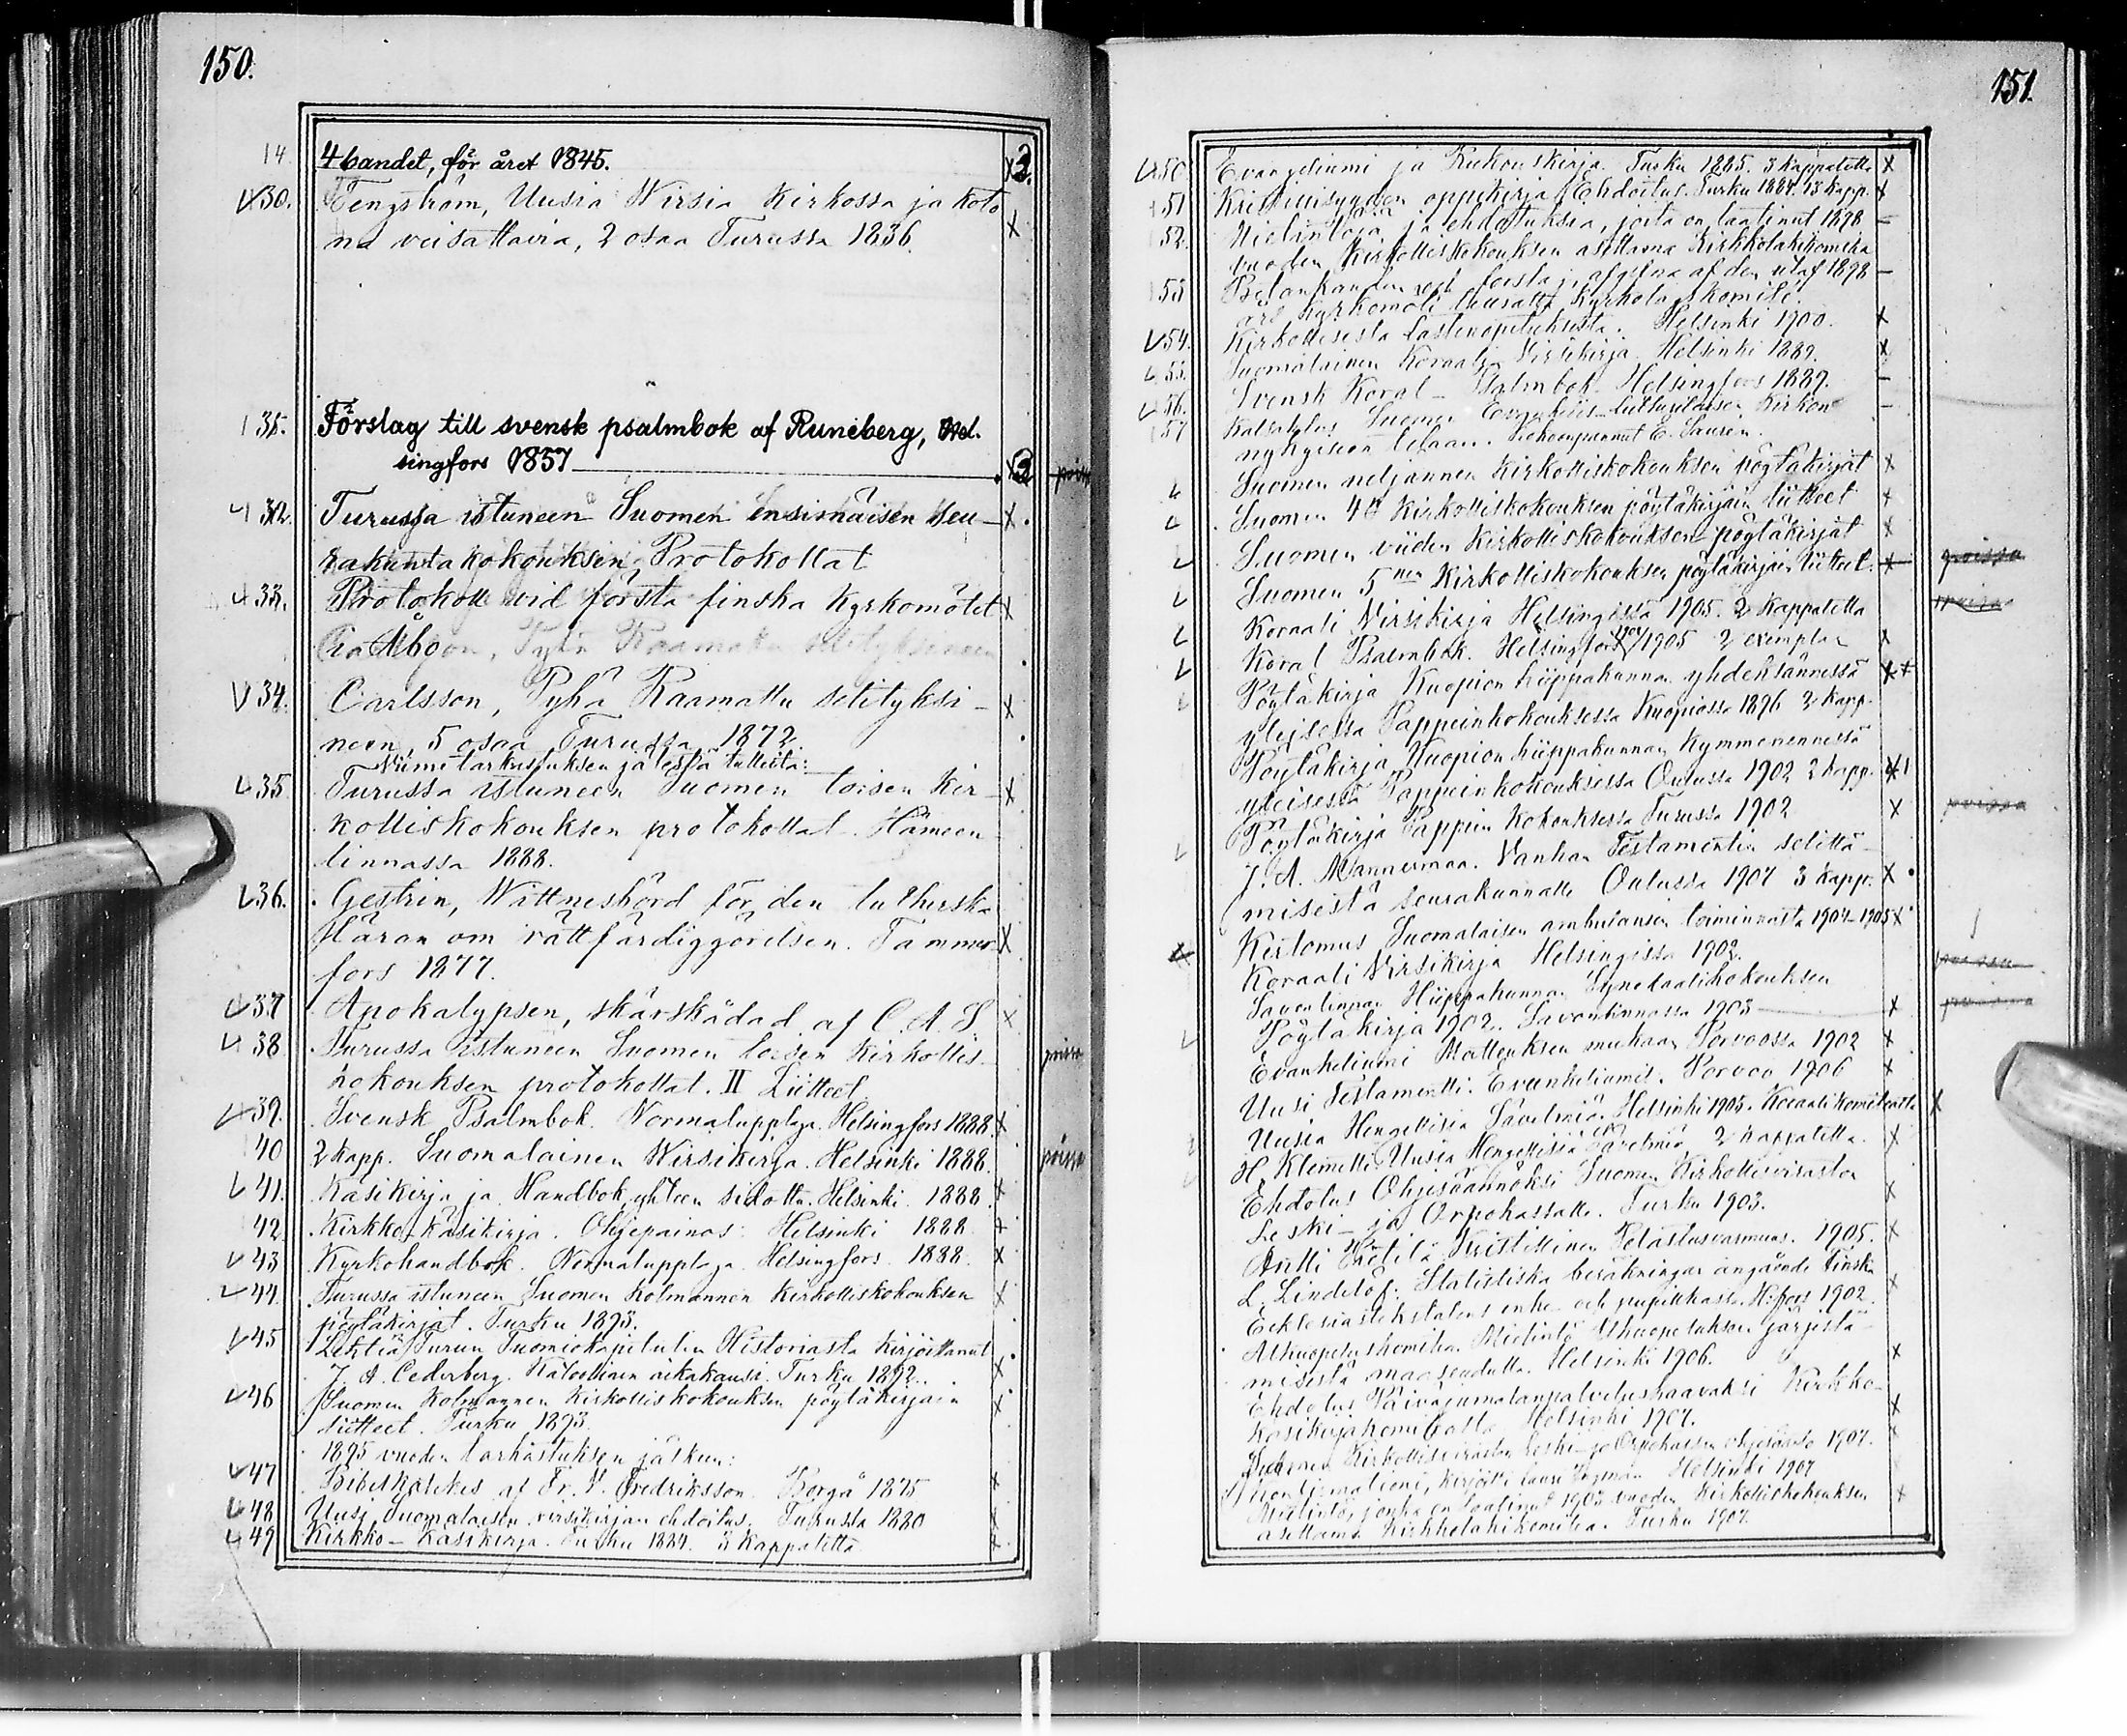 150.
14. 4 bandet, för året 1845. 2.
30. Tengström, Uusia Wirsia Kirkossa ja koto X
na veisattavia, 2 osaa Turussa 1836.
31. Förslag till svensk psalmbok af Runeberg, Hel-
singfors 1857 2
32. Turussa istuneen Suomen ensimäisen Seu- X
rakuntakokouksen Protokollat
33. Protokoll vid första finska Kyrkomötet X
i Åbo
34. Carlsson, Pyhä Raamattu selityksi- X
neen, 5 osaa Turussa 1872.
Viime tarkastuksen jälestä tulleita:
35 Turussa istuneen Suomen toisen Kir- X
kolliskokouksen protokollat. Hämeen-
linnassa 1888.
36. Gestrin, Wittnesbörd för den lutherska
läran om rättfärdiggörelsen. Tammer- X
fors 1877.
37 Apokalypsen, skärskådad af C. A. S X
38 Turussa istuneen Suomen toisen Kirkollis- poissa
kokouksen protokollat. II Liitteet
39. Svensk Psalmbok. Normalupplaga. Helsingfors 1888. X
40 2 kapp. Suomalainen Wirsikirja. Helsinki 1888. poissa
41. Käsikirja ja Handbok yhteen sidottu. Helsinki 1888. X
42. Kirkko-Käsikirja. Ohjepainos: Helsinki 1888 X
43 Kyrkohandbok. Normalupplaga. Helsingfors 1888. X
44. Turussa istuneen Suomen Kolmannen Kirkolliskokouksen X
pöytäkirjat. Turku 1893.
45 Lehtiä Turun Tuomiokapitulin Historiasta Kirjoittanut
J. A. Cederberg. Katoollinen aikakausi. Turku 1892. X
46 Suomen Kolmannen Kirkolliskokouksen pöytäkirjain X
liitteet. Turku 1893.
1895 vuoden tarkastuksen jälkeen:
47 Bibelkatekes af Fr. V. Fredriksson Borgå 1875 X
48 Uusi Suomalaisen virsikirjan ehdoitus. Turussa 1880 X
49 Kirkko-Käsikirja. Turku 1884. 3 Kappaletta X
151.
50. Evangeliumi ja Rukouskirja. Turku 1885. 3 Kappaletta X
51 Kristillisyyden oppikirja Ehdoitus. Turku 1884. 13 Kapp. X
52. Mielintöjä ja ehdotuksia, joita on laatinut 1898 –
vuoden Kirkolliskokouksen asettama Kirkkolakikomitea
53 Betänkanden och förslag, afgifna af den utaf 1898 –
års Kyrkomöte tillsatta Kyrkolagskomité.
54. Kirkollisesta lastenopetuksesta. Helsinki 1900. X
55. Suomalainen Koraali Virsikirja Helsinki 1889. X
56. Svensk Koral-Psalmbok Helsingfors 1889. –
57 Katsahdus Suomen Evankelis-lutherilaisen Kirkon –
nykyiseen tilaan. Kokoonpannut
Suomen neljännen Kirkolliskokouksen pöytäkirjat X
Suomen 4n Kirkolliskokouksen pöytäkirjain liitteet X
Suomen viiden Kirkolliskokouksen pöytäkirjat X
Suomen 5nen Kirkolliskokouksen pöytäkirjain liitteet. X poissa
Koraali Virsikirja Helsingissä 1905. 2 Kappaletta
Koral Psalmbok. Helsingfors 1905 2 exemplar X
Pöytäkirja Kuopion hiippakunnan yhdeksännessä XX
yleisessä Pappeinkokouksessa Kuopiossa 1896 2 kapp.
Pöytäkirja Kuopion hiippakunnan Kymmenennessä
yleisessä Pappeinkokouksessa Oulussa 1902 2 kapp.
Pöytäkirja Pappein Kokouksessa Turussa 1902 X poissa
J. A. Mannermaa. Vanhan Testamentin selittä-
misestä seurakunnalle Oulussa 1907 3 kapp. X
Kertomus Suomalaisen ambulansin toiminnasta 1904-1905 X
Koraali Virsikirja Helsingissä 1902. poissa
Savonlinnan Hiippakunnan Synodaalikokouksen
Pöytäkirja 1902. Savonlinnassa 1903 X poissa
Evankeliumi Matteuksen mukaan Porvoossa 1902 X
Uusi Testamentti. Evankeliumit. Porvoo 1906 X
Uusia Hengellisiä Säwelmiä. Helsinki 1905. Koraalikomitealta X
H. Klemetti Uusia Hengellisiä Säwelmiä 2 kappaletta. X
Ehdotus Ohjesäännöksi Suomen Kirkollisviraston
Leski- ja Orpokassalle. Turku 1903. X
Antti Kristillinen Pelastusvarmuus. 1905. X
L. Lindelöf: Statistiska beräkningar angående Finska
Ecklesiastikstatens enke- och pupillkassa. H:fors 1902 X
Alkuopetuskomitea. Mietintö Alkuopetuksen järjestä-
misestä maaseudulla. Helsinki 1906. X
Ehdotus Päiväjumalanpalveluskaavaksi Kirkko-
käsikirjakomitealta Helsinki 1907. X
Suomen Kirkollisviraston Leski- ja Orpokassan ohjesääntö 1907.
Konfirmationi, kirjoitti Lauri Ingman Helsinki 1907
Mietintö, jonka on laatinut 1903 vuoden Kirkolliskokouksen X
asettama Kirkkolakikomitea. Turku 1907.